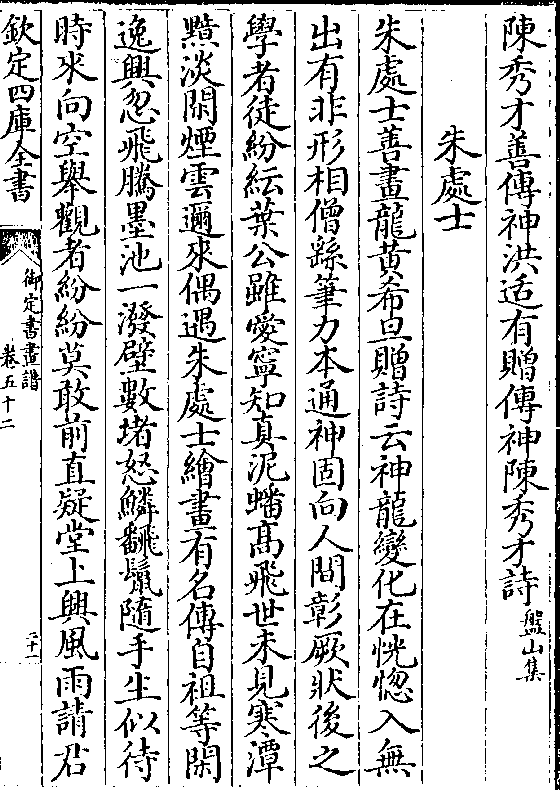 陳秀才善傳神洪适有贈傳神陳秀才詩盤山集
朱處士
朱處士善畫龍黄希旦贈詩云神龍變化在恍惚入無
出有非形相僧繇筆力本通神固向人間彰厥狀後之
學者徒紛紜葉公雖愛寧知真泥蟠髙飛世未見寒潭
黯淡閑煙雲邇來偶遇朱處士繪畫有名傳自祖等閑
逸興忽飛騰墨池一潑壁數堵怒鱗飜鬛隨手生似待
時來向空舉觀者紛紛莫敢前直疑堂上興風雨請君
欽定四庫全書
御定書畫譜
卷五十二
二十一